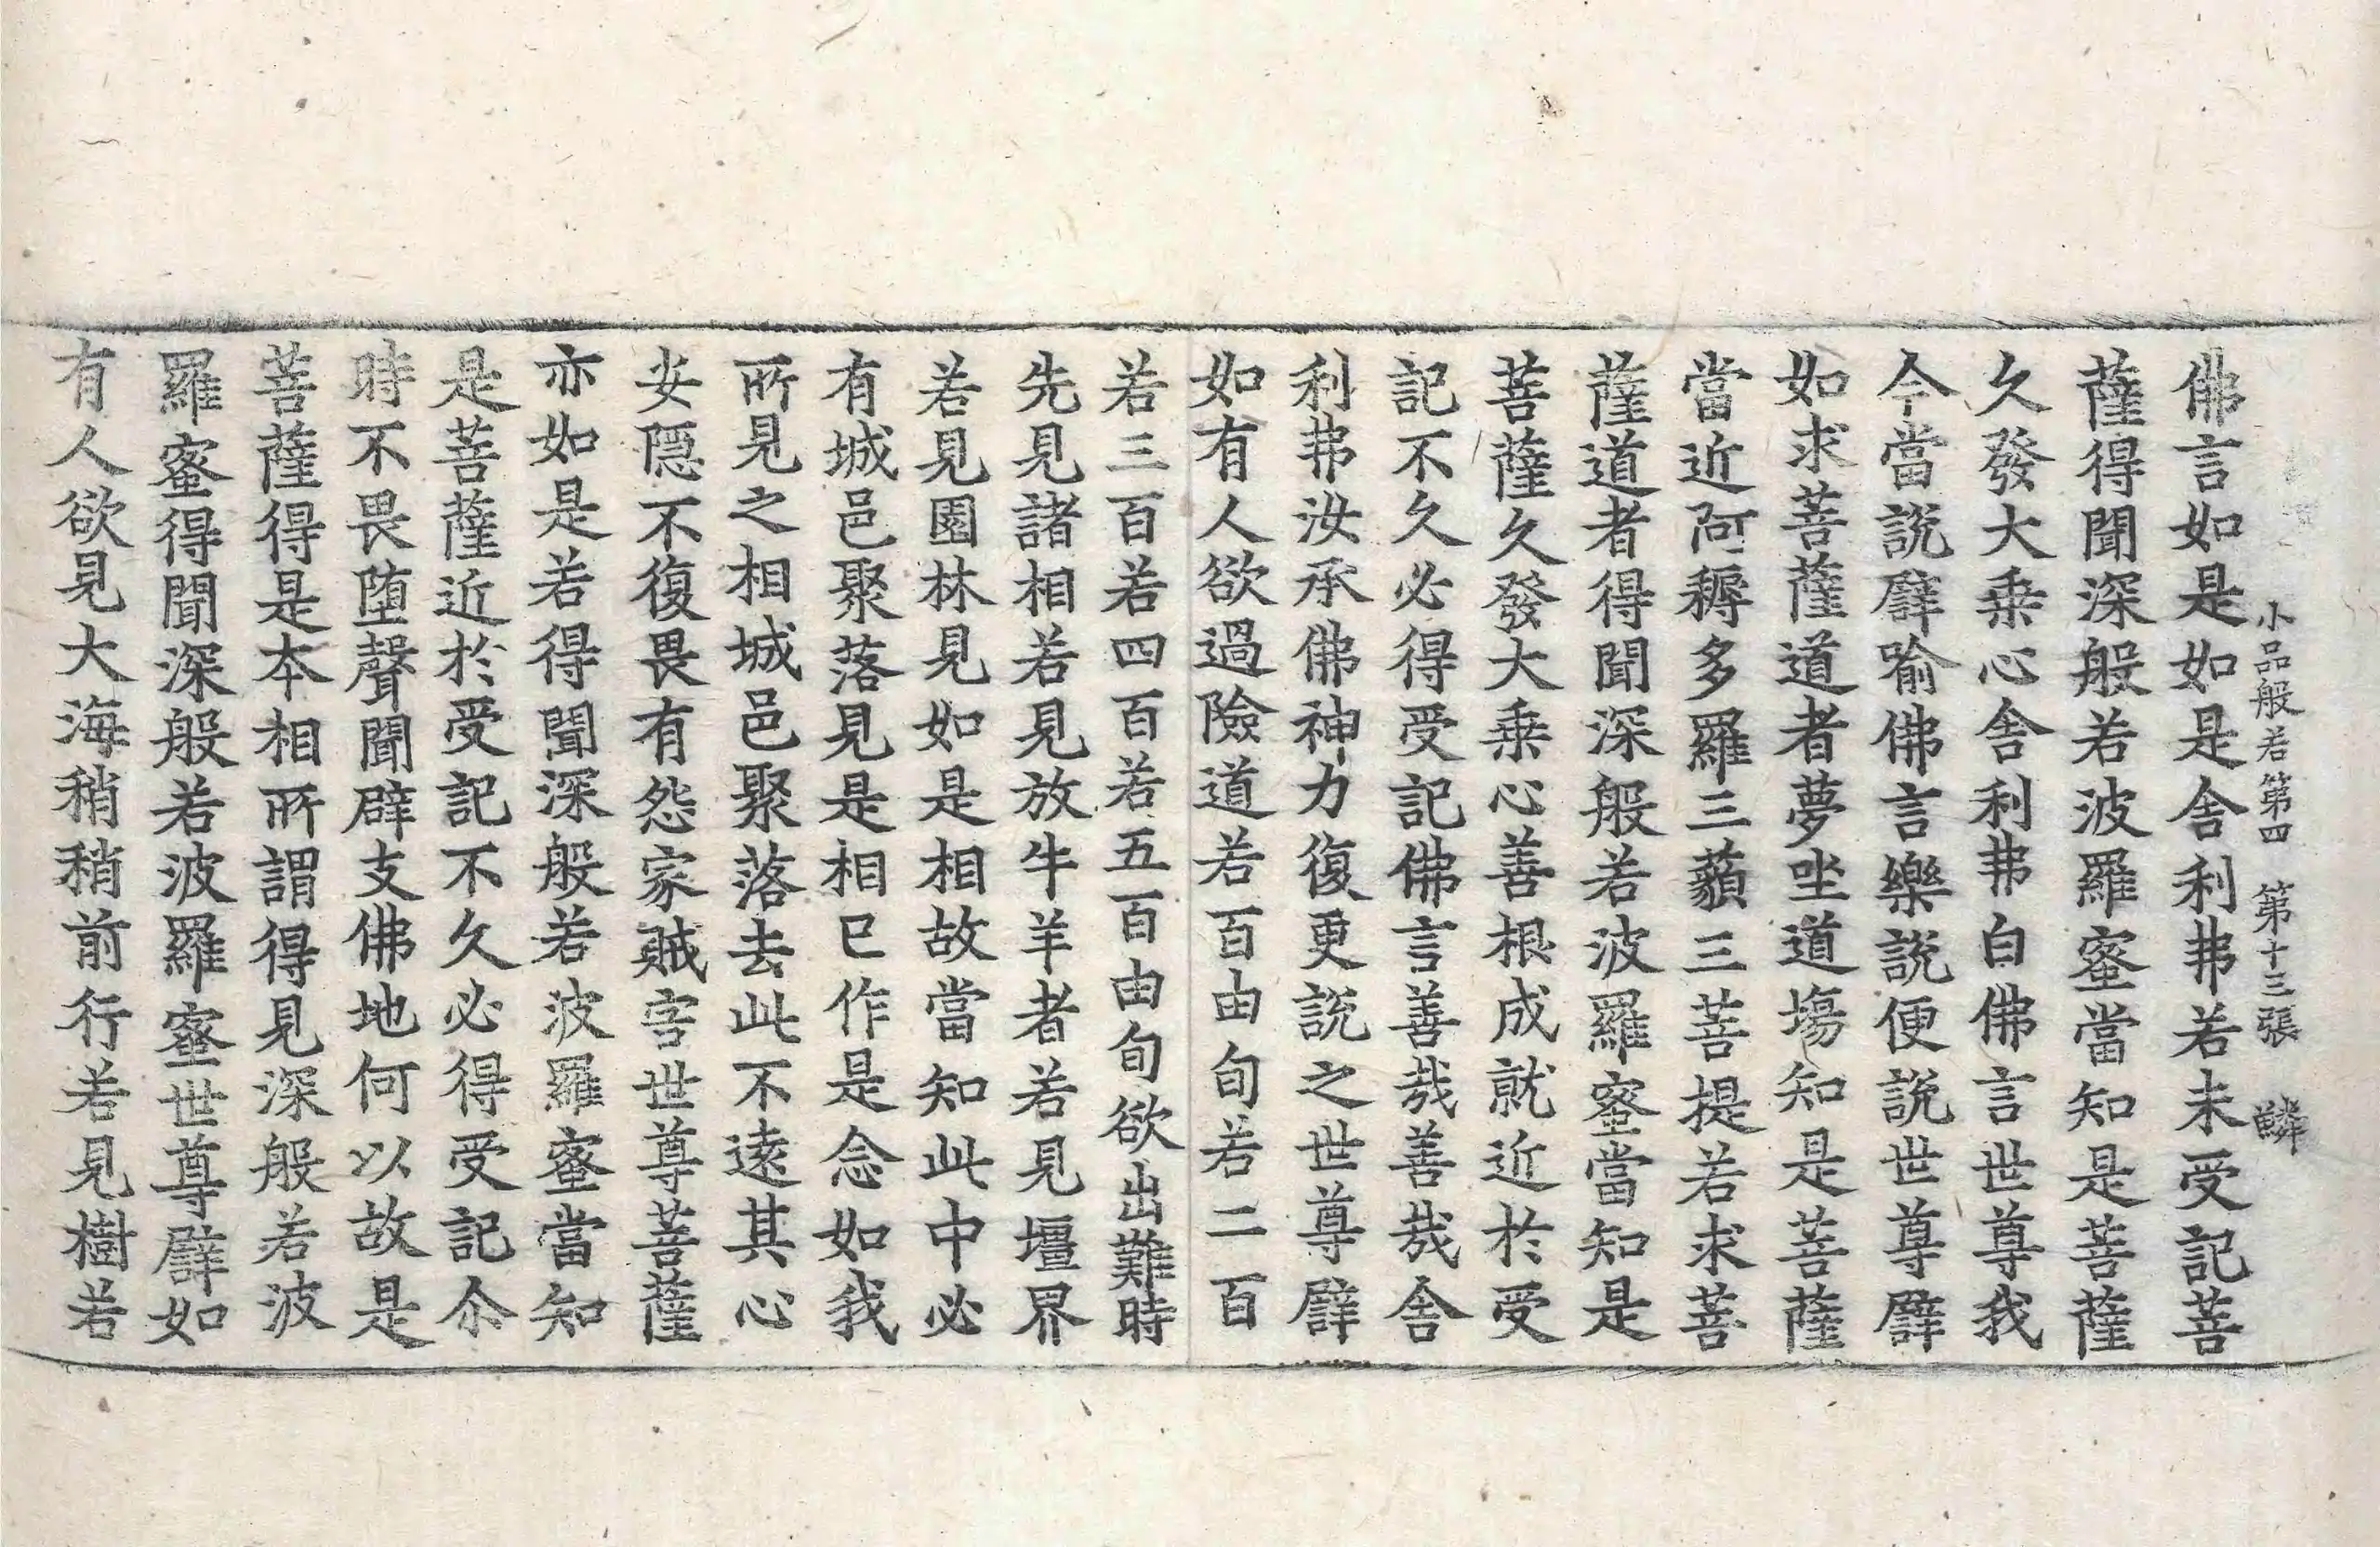 小品般若第四　第十三張　鱗
佛言如是如是舍利弗若未受記菩
薩得聞深般若波羅蜜當知是菩薩
久發大乗心舍利弗白佛言世尊我
今當說譬喻佛言樂說便說世尊譬
如求菩薩道者夢坐道場知是菩薩
當近阿耨多羅三藐三菩提若求菩
薩道者得聞深般若波羅蜜當知是
菩薩久發大乗心善根成就近於受
記不久必得受記佛言善哉善哉舍
利弗汝承佛神力復更說之世尊譬
如有人欲過險道若百由旬若二百
若三百若四百若五百由旬欲出難時
先見諸相若見放牛羊者若見壃界
若見園林見如是相故當知此中必
有城邑聚落見是相已作是念如我
所見之相城邑聚落去此不遠其心
安隠不復畏有怨家賊害世尊菩薩
亦如是若得聞深般若波羅蜜當知
是菩薩近於受記不久必得受記尒
時不畏墮聲聞辟支佛地何以故是
菩薩得是本相所謂得見深般若波
羅蜜得聞深般若波羅蜜世尊譬如
有人欲見大海稍稍前行若見樹若